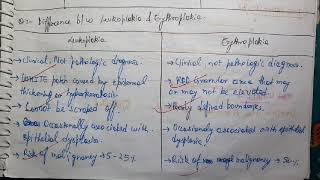 Q:- Difference b/w Leukoplakia & Erythroplakia
Leukoplakia
Erythroplakia
→ Clinical, Not pathologic diagnosis.
→ WHITE patch caused by epidermal
thickening or hyperkeratosis.
→ Cannot be scraped off.
→ Occasionally associated with
epithelial dysplasia.
→ Risk of malignancy → 5-25%
→ Clinical not pathologic diagnosis.
→ RED Granular area that may
or may not be elevated.
→ defined boundaries.
→ Occasionally associated with epithelial
dysplasia
→ Risk of malignancy → 50%